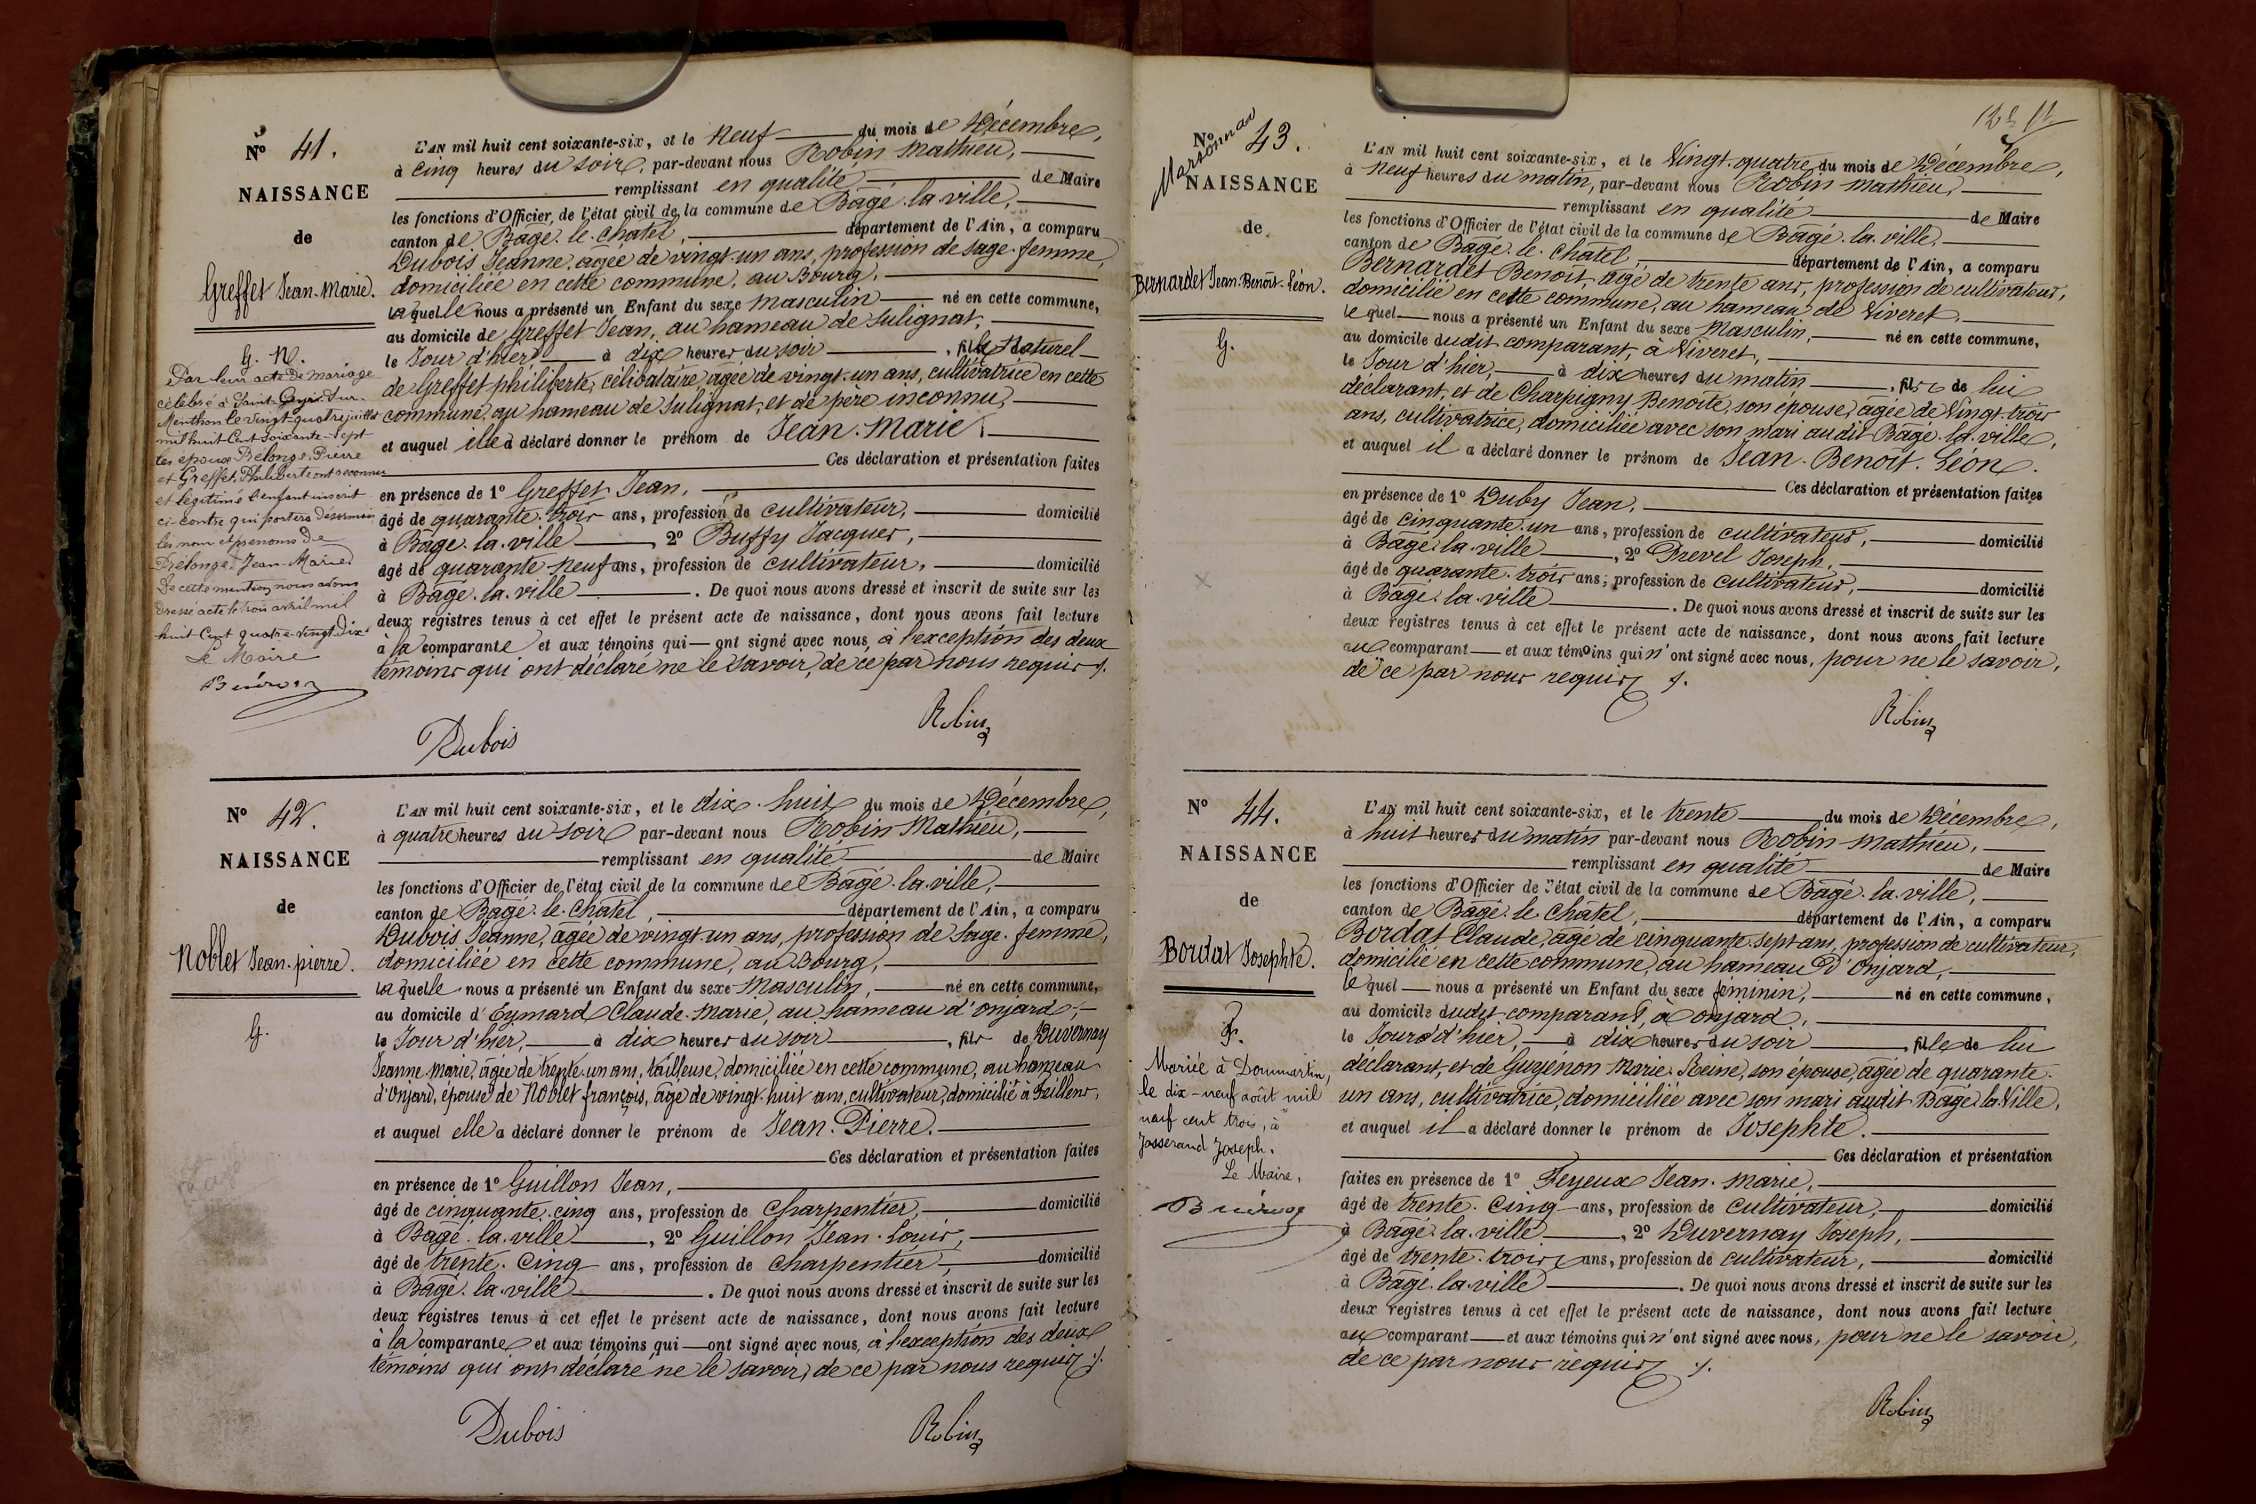 N° 41.
NAISSANCE
de
Greffet Jean-Marie.
G. N.
Par leur acte de mariage
célébré à Saint Cyr-sur-
Menthon le vingt-quatre juillet
mil huit cent soixante-sept
les époux Délonge Pierre
et Greffet Philiberte ont reconnu
et légitimé l'enfant inscrit
ci-contre qui portera désormais
les nom et prénoms de
Délonge Jean-Marie
De cette mention nous avons
dressé acte le trois avril mil
huit cent quatre-vingt-dix
Le Maire
L'AN mil huit cent soixante-six, et le Neuf du mois de Décembre,
à cinq heures du soir, par-devant nous Robin Mathieu,
remplissant en qualité de Maire
les fonctions d'Officier de l'état civil de la commune de Bâgé-la-ville,
canton de Bâgé-le-Châtel, département de l'Ain, a comparu
Dubois Jeanne, agée de vingt-un ans, profession de sage-femme,
domiciliée en cette commune, au Bourg,
laquelle nous a présenté un Enfant du sexe Masculin né en cette commune,
au domicile de Greffet Jean, au hameau de Sulignat,
le Jour d'hier à dix heures du soir, fils Naturel
de Greffet philiberte, célibataire, agée de vingt-un ans, cultivatrice en cette
commune, au hameau de Sulignat, et de père inconnu,
et auquel elle a déclaré donner le prénom de Jean-Marie
Ces déclaration et présentation faites
en présence de 1° Greffet Jean,
âgé de quarante-trois ans, profession de cultivateur, domicilié
à Bâgé-la-ville, 2° Buffy Jacques,
âgé de quarante neuf ans, profession de cultivateur, domicilié
à Bâgé-la-ville. De quoi nous avons dressé et inscrit de suite sur les
deux registres tenus à cet effet le présent acte de naissance, dont nous avons fait lecture
à la comparante et aux témoins qui ont signé avec nous, à l'exception des deux
témoins qui ont déclaré ne le savoir, de ce par nous requis ./.
Dubois Robin
N° 42.
NAISSANCE
de
Noblet Jean-pierre.
G.
L'AN mil huit cent soixante-six, et le dix-huit du mois de Décembre,
à quatre heures du soir par-devant nous Robin Mathieu,
remplissant en qualité de Maire
les fonctions d'Officier de l'état civil de la commune de Bâgé-la-ville,
canton de Bâgé-le-Châtel, département de l'Ain, a comparu
Dubois Jeanne, agée de vingt-un ans, profession de Sage-femme,
domiciliée en cette commune, au Bourg,
laquelle nous a présenté un Enfant du sexe Masculin, né en cette commune,
au domicile d'Eymard Claude-Marie, au hameau d'onjard,
le Jour d'hier, à dix heures du soir, fils de Duvernay
Jeanne-Marie, agée de trente-un ans, tailleuse, domiciliée en cette commune, au hameau
d'Onjard, épouse de Noblet françois, agé de vingt-huit ans, cultivateur, domicilié à
et auquel elle a déclaré donner le prénom de Jean-Pierre.
Ces déclaration et présentation faites
en présence de 1° Guillon Jean,
âgé de cinquante-cinq ans, profession de Charpentier, domicilié
à Bâgé-la-ville, 2° Guillon Jean-Louis,
âgé de trente-cinq ans, profession de Charpentier, domicilié
à Bâgé-la-ville. De quoi nous avons dressé et inscrit de suite sur les
deux registres tenus à cet effet le présent acte de naissance, dont nous avons fait lecture
à la comparante et aux témoins qui ont signé avec nous, à l'exception des deux
témoins qui ont déclaré ne le savoir, de ce par nous requis ./.
Dubois Robin
Marsonnas
N° 43.
NAISSANCE
de
Bernardet Jean-Benoît-Léon.
G.
L'AN mil huit cent soixante-six, et le Vingt-quatre du mois de Décembre,
à Neuf heures du matin, par-devant nous Robin Mathieu,
remplissant en qualité de Maire
les fonctions d'Officier de l'état civil de la commune de Bâgé-la-ville,
canton de Bâgé-le-Châtel, département de l'Ain, a comparu
Bernardet Benoit, agé de trente ans, profession de cultivateur,
domicilié en cette commune, au hameau de Viveret,
lequel nous a présenté un Enfant du sexe Masculin, né en cette commune,
au domicile dudit comparant, à Viveret,
le Jour d'hier, à dix heures du matin, fils de lui
déclarant, et de Charpigny Benoite, son épouse, agée de Vingt-trois
ans, cultivatrice, domiciliée avec son mari audit Bâgé-la-ville,
et auquel il a déclaré donner le prénom de Jean-Benoît-Léon.
Ces déclaration et présentation faites
en présence de 1° Duby Jean,
âgé de cinquante-un ans, profession de cultivateur, domicilié
à Bâgé-la-ville, 2° Drevel Joseph,
âgé de quarante-trois ans, profession de cultivateur, domicilié
à Bâgé-la-ville. De quoi nous avons dressé et inscrit de suite sur les
deux registres tenus à cet effet le présent acte de naissance, dont nous avons fait lecture
au comparant et aux témoins qui n'ont signé avec nous, pour ne le savoir,
de ce par nous requis ./.
Robin
N° 44.
NAISSANCE
de
Bordat Josephte.
F.
Mariée à Dommartin,
le dix-neuf août mil
neuf cent trois, à
Josserand Joseph.
Le Maire,
L'AN mil huit cent soixante-six, et le trente du mois de Décembre,
à huit heures du matin par-devant nous Robin Mathieu,
remplissant en qualité de Maire
les fonctions d'Officier de l'état civil de la commune de Bâgé-la-ville,
canton de Bâgé-le-Châtel, département de l'Ain, a comparu
Bordat Claude, agé de cinquante-sept ans, profession de cultivateur,
domicilié en cette commune, au hameau d'Onjard,
lequel nous a présenté un Enfant du sexe féminin, né en cette commune,
au domicile dudit comparant, à onjard,
le Jour d'hier, à dix heures du soir, fille de lui
déclarant, et de Guyénon Marie-Reine, son épouse, agée de quarante-
un ans, cultivatrice, domiciliée avec son mari audit Bâgé-la-Ville,
et auquel il a déclaré donner le prénom de Josephte.
Ces déclaration et présentation
faites en présence de 1° Feyeux Jean-Marie,
âgé de trente-cinq ans, profession de Cultivateur, domicilié
à Bâgé-la-ville, 2° Duvernay Joseph,
âgé de trente-trois ans, profession de cultivateur, domicilié
à Bâgé-la-ville. De quoi nous avons dressé et inscrit de suite sur les
deux registres tenus à cet effet le présent acte de naissance, dont nous avons fait lecture
au comparant et aux témoins qui n'ont signé avec nous, pour ne le savoir,
de ce par nous requis ./.
Robin